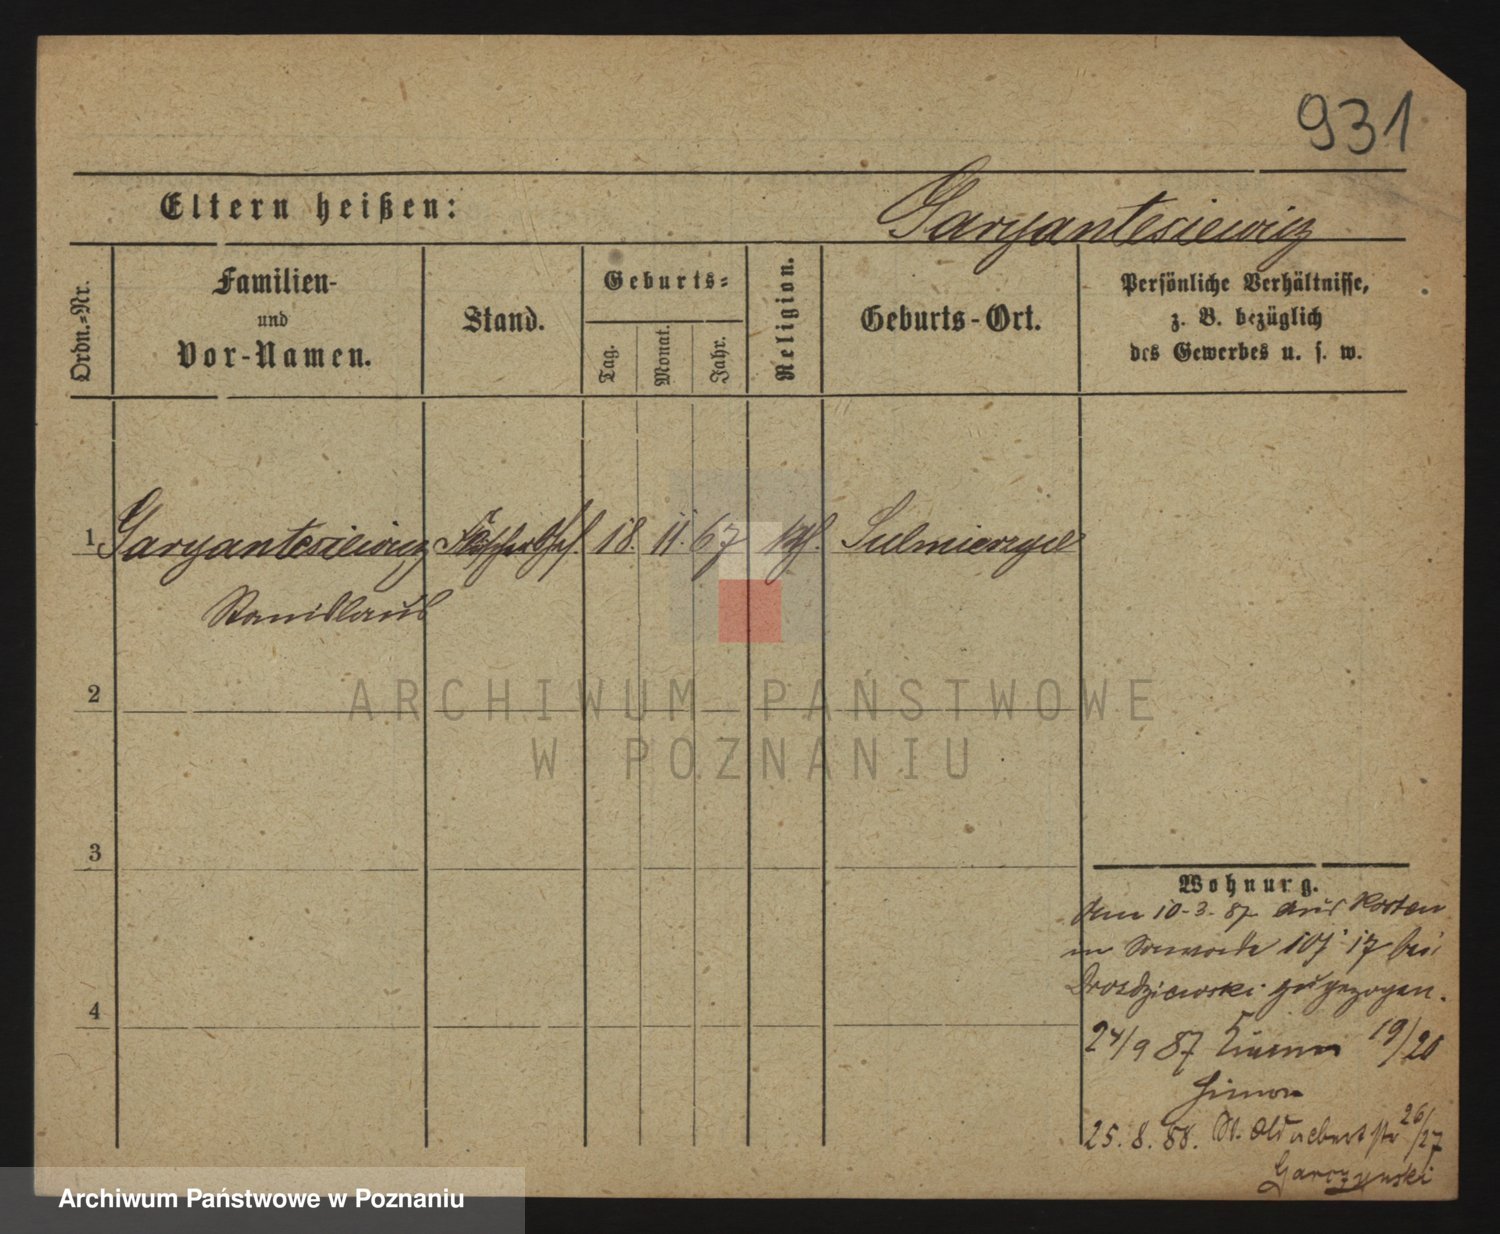 931
Eltern heißen:
Garyantesiewicz
Ordn.-Nr.
Familien-
und
Vor-Namen.
Stand.
Geburts-
Tag.
Monat.
Jahr.
Religion.
Geburts-Ort.
Persönliche Verhältnisse,
z. B. bezüglich
des Gewerbes u. s. w.
1 Garyantesiewicz 18. 11. 67 kth. Sulmierzyce
Stanislaus
2
ARCHIWUM PAŃSTWOWE
W POZNANIU
3
4
Wohnung.
den 10-3-87 aus Kosten
17 bei
Drosdziewski zugezogen.
24/9 87 19/20
Simon
25. 8. 88. St. Adalbertstr 26/27
Garczynski
Archiwum Państwowe w Poznaniu